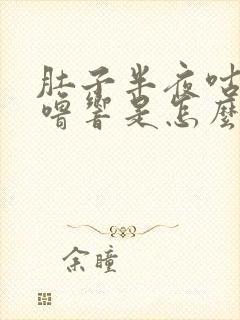 肚子半夜咕
噜響是怎麼
余瞳